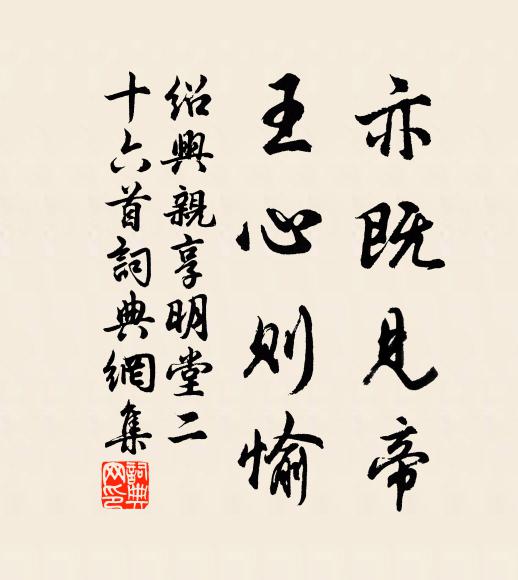 亦既見帝
王心則愉
紹興親享明堂二
十六首詞典網集
詞典网印